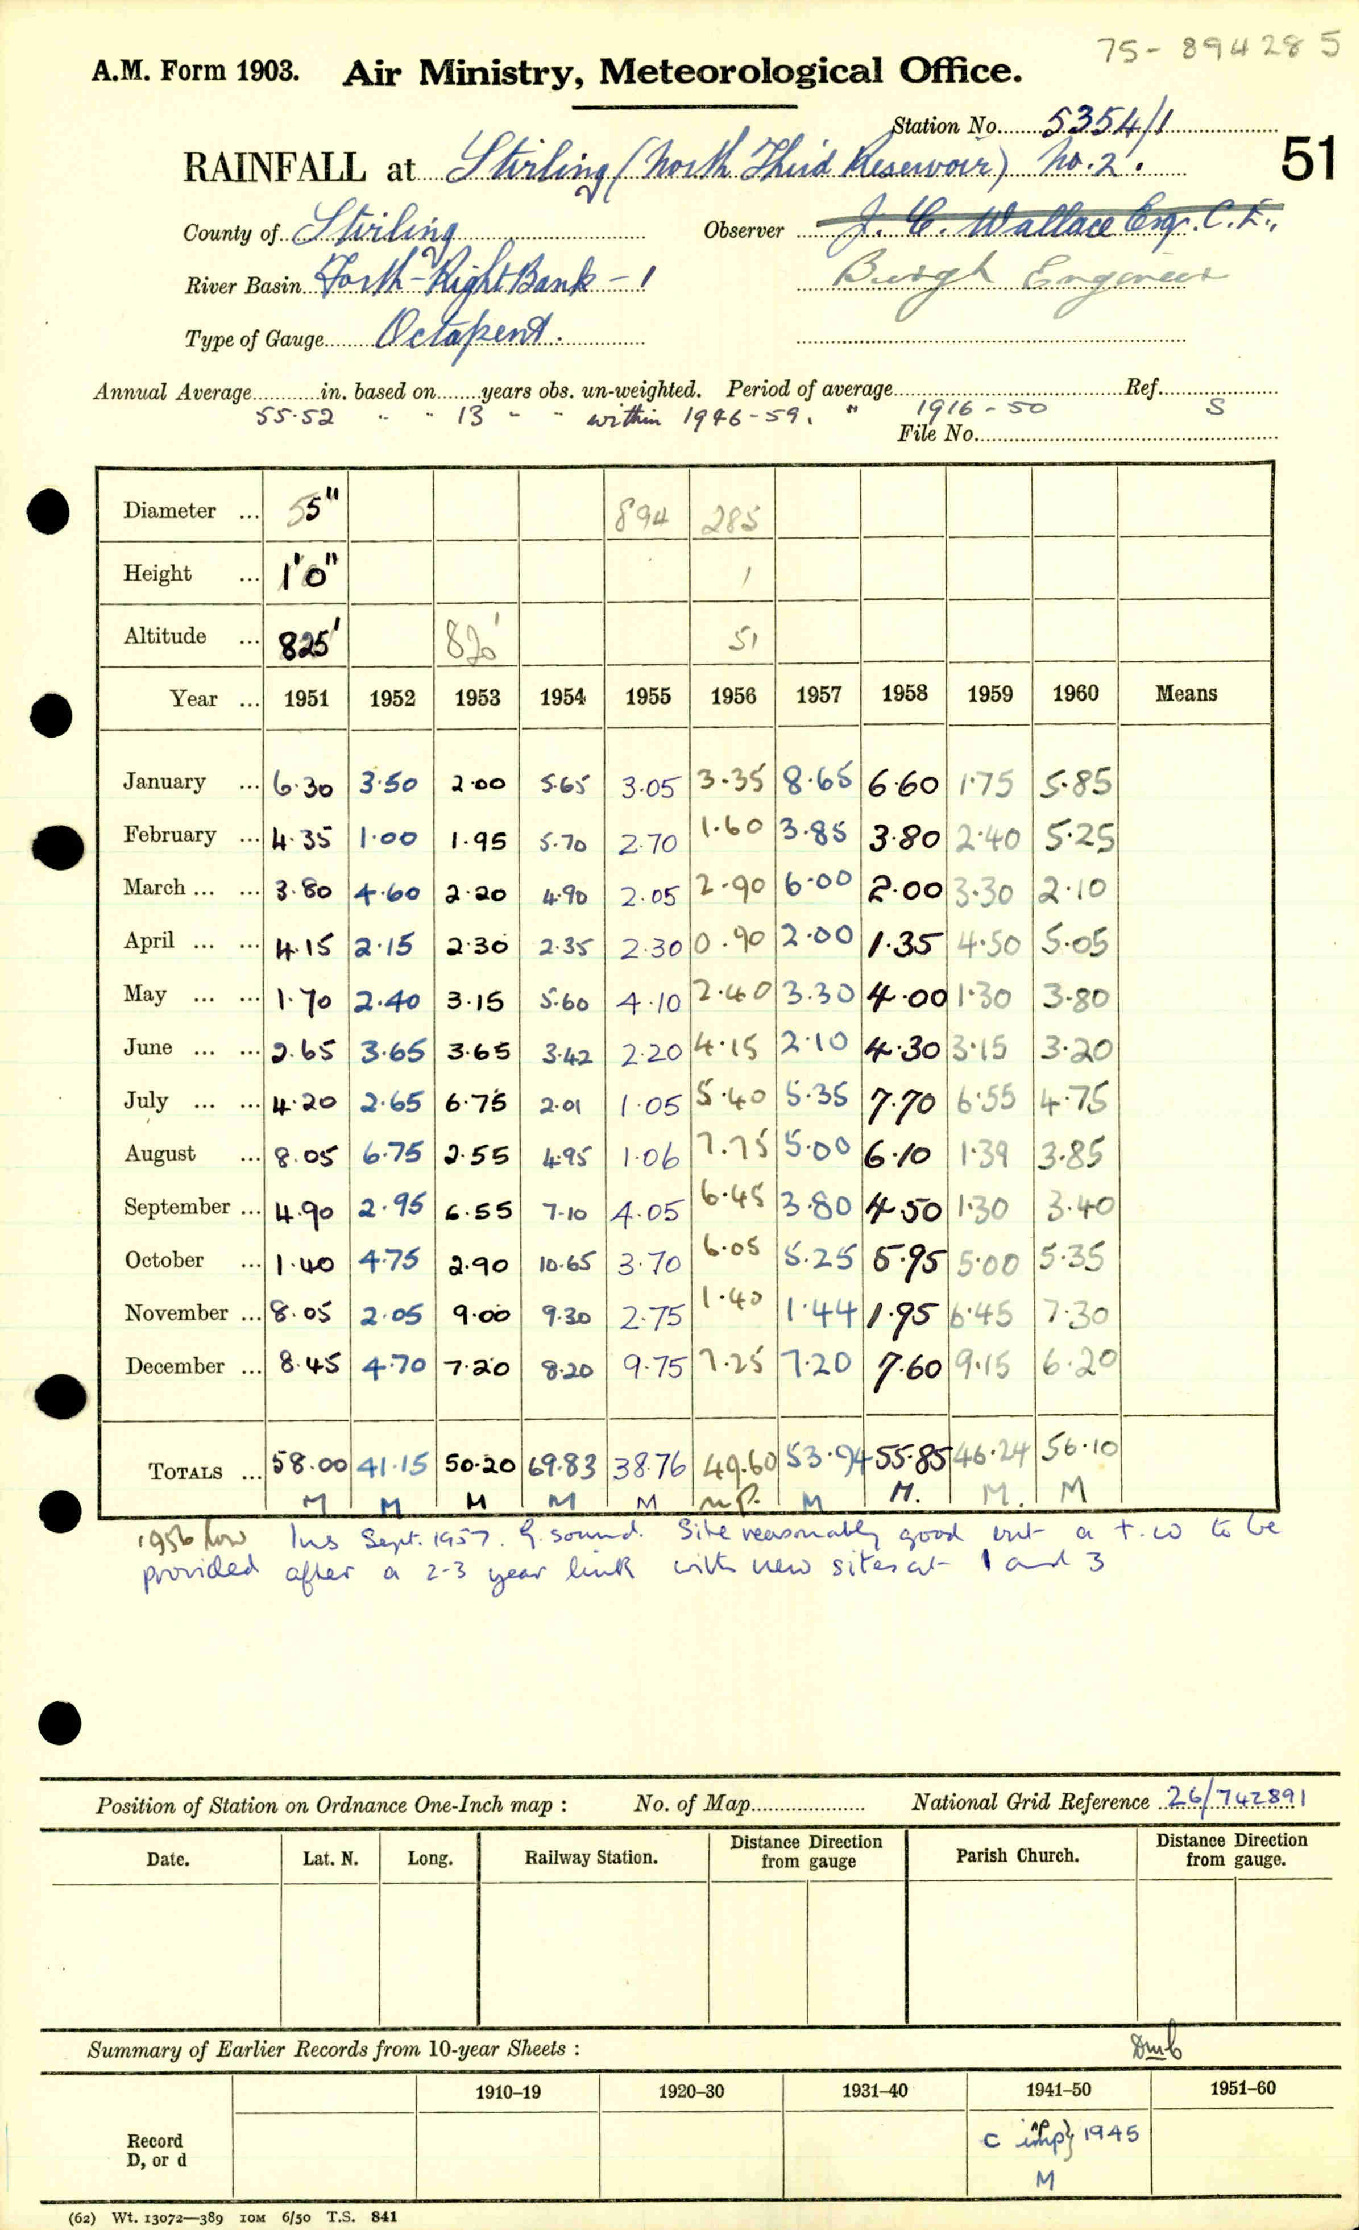 75- 894285
A.M. Form 1903. Air Ministry, Meteorological Office.
Station No. 5354/1
51
RAINFALL at Stirling (North Third Reservoir) No. 2.
County of Stirling Observer J. C. Wallace Esq. C.E.,
River Basin Forth - Right Bank - 1 Burgh Engineer
Type of Gauge Octapent.
Annual Average in. based on years obs. un-weighted. Period of average Ref.
55.52 " " 13 " " within 1946-59. " 1916-50 S
File No.
Diameter ... 5" 894 285
Height ... 1'0" 1
Altitude ... 825' 820' 51
Year ... 1951 1952 1953 1954 1955 1956 1957 1958 1959 1960 Means
January ... 6.30 3.50 2.00 5.65 3.05 3.35 8.65 6.60 1.75 5.85
February ... 4.35 1.00 1.95 5.70 2.70 1.60 3.85 3.80 2.40 5.25
March ... ... 3.80 4.60 2.20 4.90 2.05 2.90 6.00 2.00 3.30 2.10
April ... ... 4.15 2.15 2.30 2.35 2.30 0.90 2.00 1.35 4.50 5.05
May ... ... 1.70 2.40 3.15 5.60 4.10 2.40 3.30 4.00 1.30 3.80
June ... ... 2.65 3.65 3.65 3.42 2.20 4.15 2.10 4.30 3.15 3.20
July ... ... 4.20 2.65 6.75 2.01 1.05 5.40 5.35 7.70 6.55 4.75
August ... 8.05 6.75 2.55 4.95 1.06 7.75 5.00 6.10 1.39 3.85
September ... 4.90 2.95 6.55 7.10 4.05 6.45 3.80 4.50 1.30 3.40
October ... 1.40 4.75 2.90 10.65 3.70 6.05 5.25 5.95 5.00 5.35
November ... 8.05 2.05 9.00 9.30 2.75 1.40 1.44 1.95 6.45 7.30
December ... 8.45 4.70 7.20 8.20 9.75 7.25 7.20 7.60 9.15 6.20
TOTALS ... 58.00 41.15 50.20 69.83 38.76 49.60 53.94 55.85 46.24 56.10
M M M M M n.p. M M. M. M
1956 low Ins Sept. 1957. G. sound. Site reasonably good but a t.w to be
provided after a 2-3 year link with new sites at 1 and 3
Position of Station on Ordnance One-Inch map : No. of Map National Grid Reference 26/742891
Date. Lat. N. Long. Railway Station. Distance Direction from gauge Parish Church. Distance Direction from gauge.
Summary of Earlier Records from 10-year Sheets : Dmb
1910–19 1920–30 1931–40 1941–50 1951–60
Record D, or d
C imp} 1945
M
(62) Wt. 13072—389 10M 6/50 T.S. 841